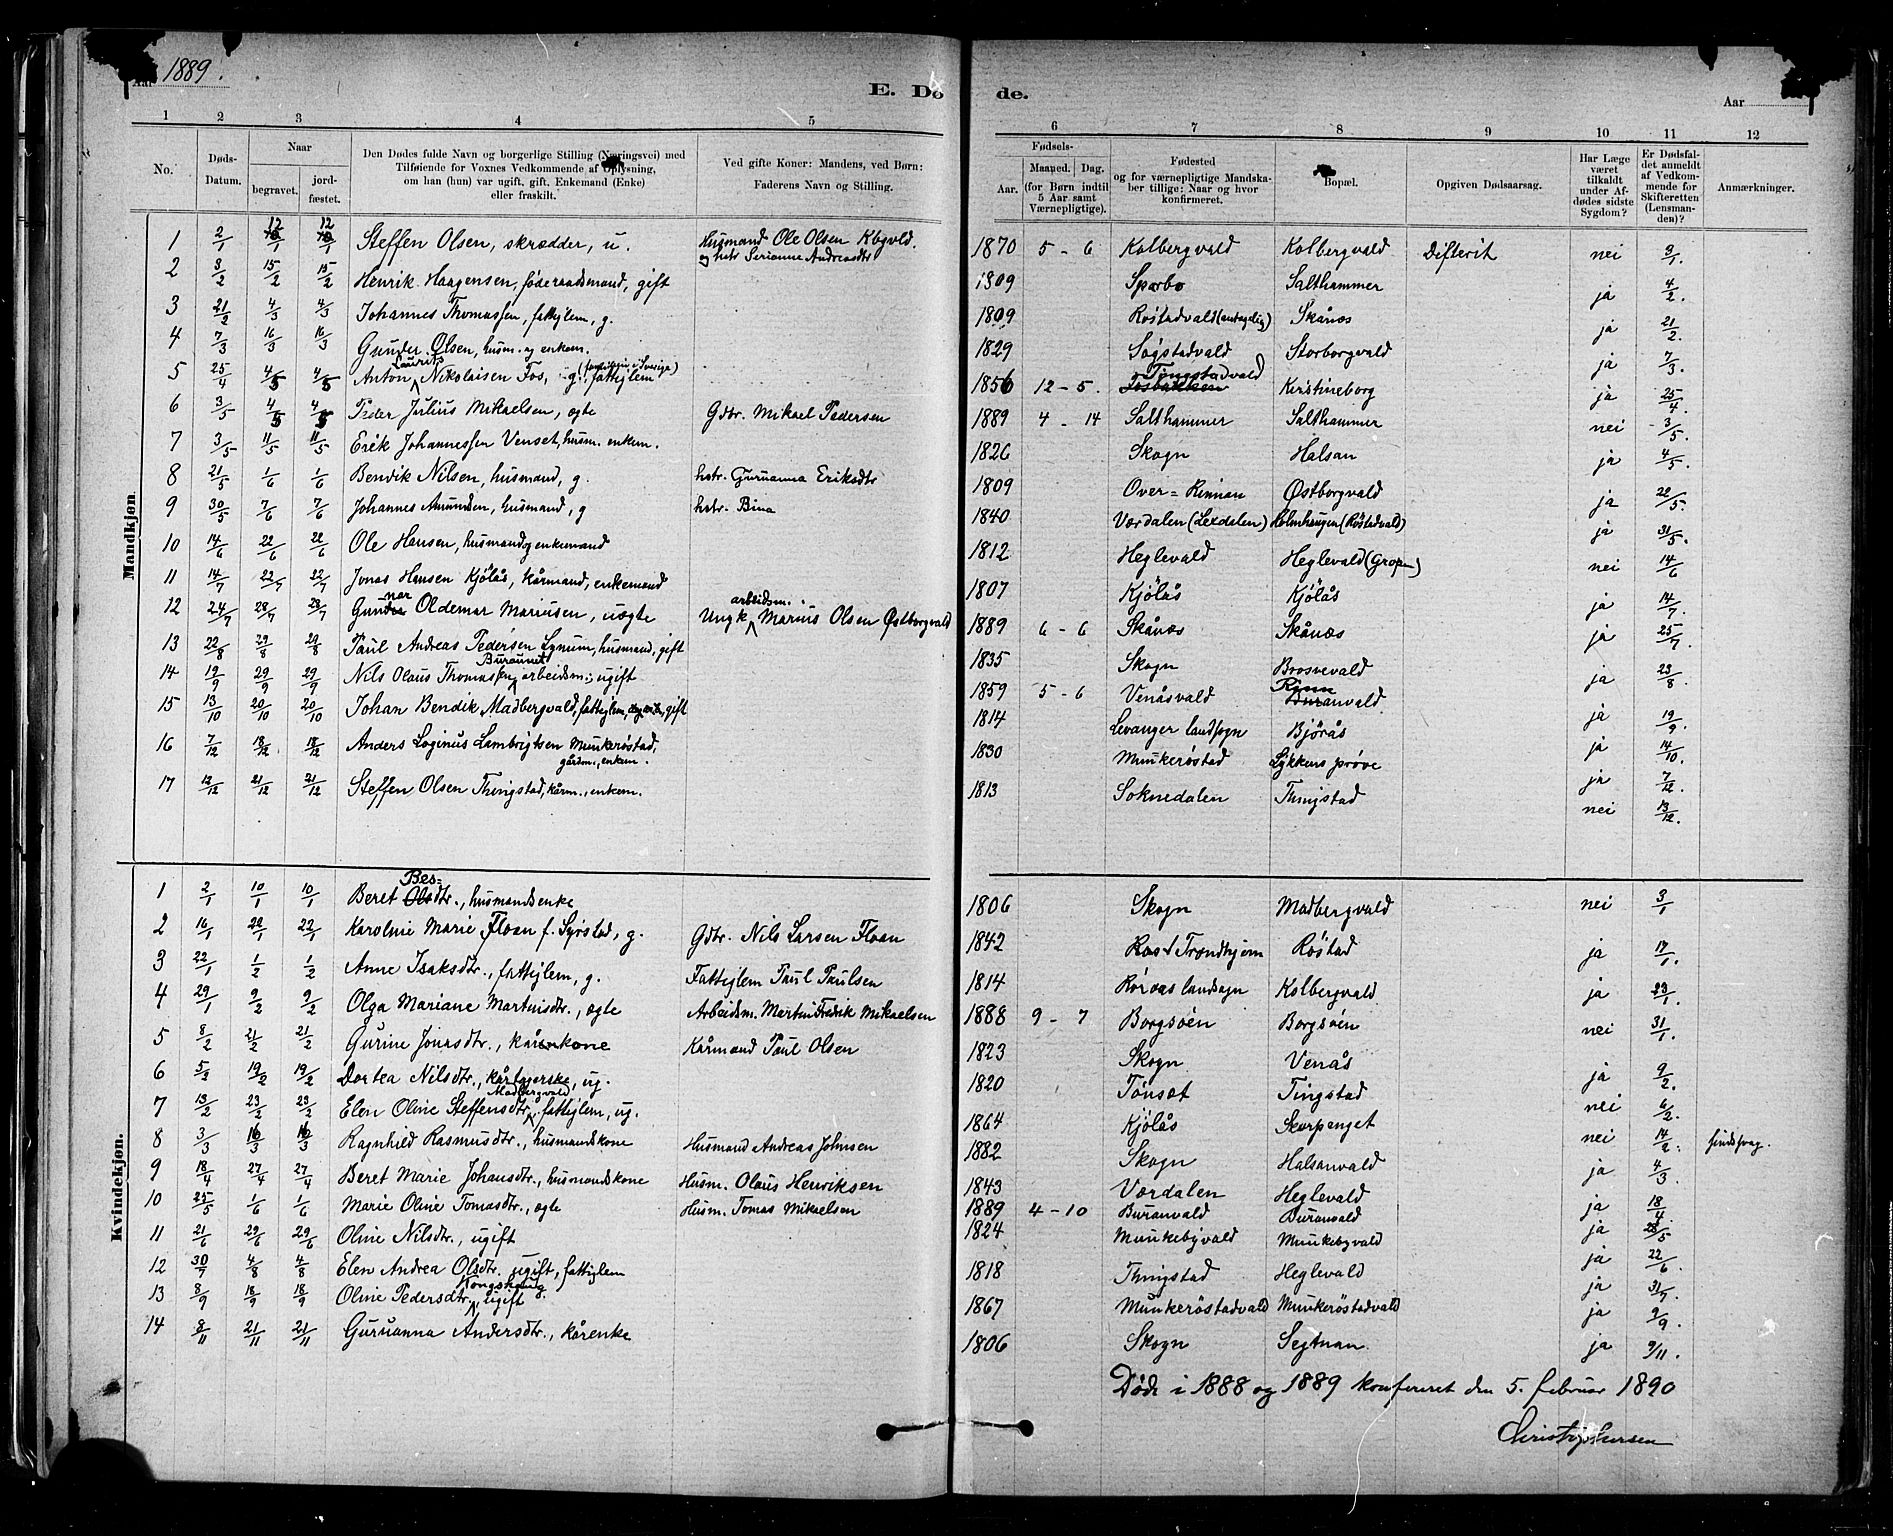 Aar 1889.
E. Dö de.
Aar
1 2 3 4 5 6 7 8 9 10 11 12
No.
Døds-Datum.
Naar
begravet.
jord-fæstet.
Den Dødes fulde Navn og borgerlige Stilling (Næringsvei) med
Tilføiende for Voxnes Vedkommende af Oplysning,
om han (hun) var ugift, gift, Enkemand (Enke)
eller fraskilt.
Ved gifte Koner: Mandens, ved Børn:
Faderens Navn og Stilling.
Fødsels-
Aar.
Maaned. Dag.
(for Børn indtil
5 Aar samt
Værnepligtige).
Fødested
og for værnepligtige Mandska-
ber tillige: Naar og hvor
konfirmeret.
Bopæl.
Opgiven Dødsaarsag.
Har Læge
været
tilkaldt
under Af-
dødes sidste
Sygdom?
Er Dødsfal-
det anmeldt
af Vedkom-
mende for
Skifteretten
(Lensman-
den)?
Anmærkninger.
Mandkjøn.
1 2/1 12/1 12/1 Steffen Olsen, skrædder, u. Husmand Ole Olsen Kbgvld. og hstr Serianne Andreasdtr 1870 5 - 6 Kolbergvald Kolbergvald Difterit nei 3/1.
2 3/2 15/2 15/2 Henrik Haagensen, føderaadsmand, gift 1809 Sparbo Salthammer ja 4/2.
3 21/2 4/3 4/3 Johannes Thomassen, fattiglem, g. 1809 Røstadvald (antagelig) Skånes ja 21/2.
4 7/3 16/3 16/3 Gunder Olsen, husm. og enkem. 1829 Søgstadvald Storborgvald ja 7/3.
5 25/4 4/5 4/5 Anton Laurits Nikolaisen Fos, g., fattiglem 1856 12 - 5 Tingstadvald Kristineborg ja 25/4.
6 3/5 4/5 4/5 Peder Julius Mikaelsen, ægte Gdbr. Mikael Pedersen 1889 4 - 14 Salthammer Salthammer nei 3/5.
7 3/5 11/5 11/5 Erik Johannessen Venset, husm. enkem. 1826 Skogn Halsan ja 4/5.
8 21/5 1/6 1/6 Benvik Nilsen, husmand, g. hstr. Guruanna Eriksdtr 1809 Over-Rinnan Østborgvald ja 22/5.
9 30/5 7/6 7/6 Johannes Amundsen, husmand, g hstr. Bina 1840 Værdalen (Lexdalen) Holmhaugen (Røstadvald) ja 31/5.
10 14/6 22/6 22/6 Ole Hansen, husmand og enkemand 1812 Heglevald Heglevald (Gropen) nei 14/6
11 14/7 22/7 22/7 Jonas Hansen Kjölås, kårmand, enkemand 1807 Kjölås Kjölås ja 14/7.
12 24/7 28/7 28/7 Gunnar Oldemar Mariusen, uægte Ungk. arbeidsm. Marius Olsen Østborgvald 1889 6 - 6 Skånes Skånes ja 25/7.
13 22/8 29/8 29/8 Paul Andreas Pedersen Lynum, husmand, gift 1835 Skogn Brosvevald ja 23/8
14 19/9 29/9 29/9 Nils Olaus Thomassen Buraunet arbeidsm., ugift 1859 5 - 6 Venåsvald Rinnanvald ja 19/9.
15 13/10 20/10 20/10 Johan Bendik Madbergvald, fattiglem, gift 1814 Levanger landsogn Bjørås ja 14/10.
16 7/12 18/12 18/12 Anders Loginus Lambrigtsen Munkerøstad, gårdm., enkem. 1830 Munkerøstad Lykkens prøve ja 7/12.
17 12/12 21/12 21/12 Steffen Olsen Thingstad, kårm., enkem. 1813 Soknedalen Thingstad nei 13/12.
Kvindekjøn.
1 2/1 10/1 10/1 Beret Besdtr., husmandsenke 1806 Skogn Madbergvald nei 3/1
2 16/1 22/1 22/1 Karoline Marie Floan f. Syrstad, g. Gdbr. Nils Larsen Floan 1842 Trondhjem Røstad ja 17/1.
3 22/1 1/2 1/2 Anne Isaksdtr., fattiglem, g. Fattiglem Paul Paulsen 1814 Röraas landsogn Kolbergvald ja 23/1.
4 29/1 9/2 9/2 Olga Mariane Martinsdtr., ægte Arbeidsm. Martin Fredrik Mikaelsen 1888 9 - 7 Borgsöen Borgsöen nei 31/1.
5 8/2 21/2 21/2 Gurine Jonasdtr., kårkone Kårmand Paul Olsen 1823 Skogn Venås ja 9/2.
6 5/2 19/2 19/2 Dortea Nilsdtr., kårtagerske, ug. 1820 Tönset Tingstad nei 6/2.
7 13/2 23/2 23/2 Elen Oline Steffensdtr. Madbergvald, fattiglem, ug. 1864 Kjölås Skorpenget nei 14/2. sindssvag.
8 3/3 16/3 16/3 Ragnhild Rasmusdtr., husmandskone Husmand Andreas Johnsen 1882 Skogn Halsanvald ja 4/3
9 18/4 27/4 27/4 Beret Marie Johansdtr., husmandskone Husm. Olaus Henriksen 1843 Værdalen Heglevald ja 18/4
10 25/5 1/6 1/6 Marie Oline Tomasdtr., ægte Husm. Tomas Mikaelsen 1889 4 - 10 Buranvald Buranvald ja 28/5
11 21/6 29/6 29/6 Oline Nilsdtr., ugift 1824 Munkebyvald Munkebyvald ja 22/6.
12 30/7 4/8 4/8 Elen Andrea Olsdtr. ugift, fattiglem 1818 Thingstad Heglevald ja 31/7.
13 8/9 18/9 18/9 Oline Pedersdtr. Kongshaug, ugift 1867 Munkeröstadvald Munkeröstadvald ja 9/9.
14 8/11 21/11 21/11 Guruanna Andersdtr., kårenke 1806 Skogn Segtnan ja 9/11.
Døde i 1888 og 1889 konfereret den 5. februar 1890
Christophersen